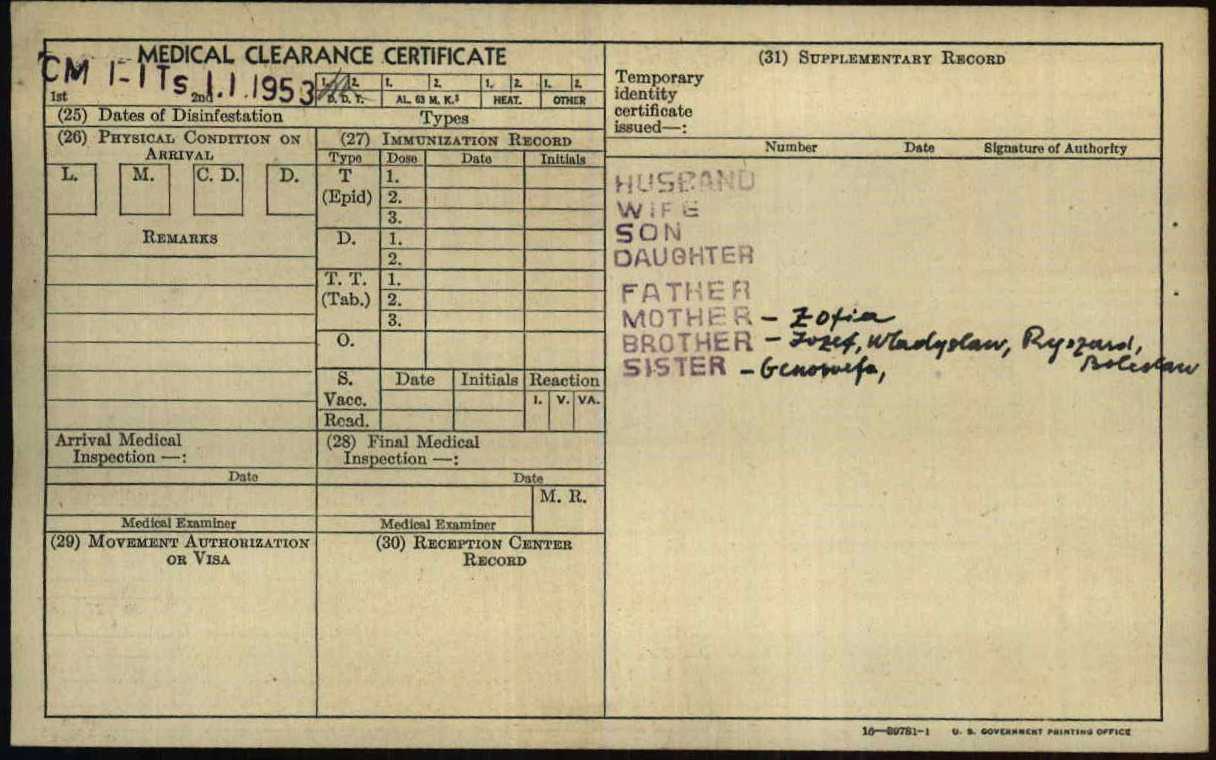 MEDICAL CLEARANCE CERTIFICATE
CM 1-1 Ts 1.1.1953
1st 2nd
1. 2. 1. 2. 1. 2. 1. 2.
D. D. T. AL. 63 M. K.³ HEAT. OTHER
(25) Dates of Disinfestation Types
(26) PHYSICAL CONDITION ON
ARRIVAL
L. M. C. D. D.
REMARKS
(27) IMMUNIZATION RECORD
Type Dose Date Initials
T 1.
(Epid) 2.
3.
D. 1.
2.
T. T. 1.
(Tab.) 2.
3.
O.
S. Date Initials Reaction
Vacc. I. V. VA.
Read.
Arrival Medical
Inspection —:
Date
Medical Examiner
(28) Final Medical
Inspection —:
Date
M. R.
Medical Examiner
(29) MOVEMENT AUTHORIZATION
OR VISA
(30) RECEPTION CENTER
RECORD
(31) SUPPLEMENTARY RECORD
Temporary
identity
certificate
issued—:
Number Date Signature of Authority
HUSBAND
WIFE
SON
DAUGHTER
FATHER
MOTHER - Zofia
BROTHER - Jozef, Władysław, Ryszard,
Bolesław
SISTER - Genowefa,
16—39781-1 U. S. GOVERNMENT PRINTING OFFICE